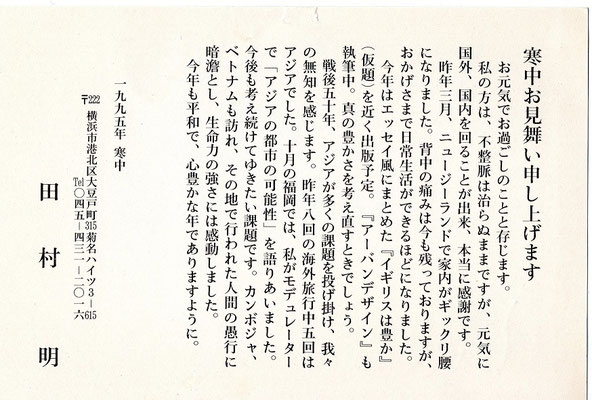 寒中お見舞い申し上げます
お元気でお過ごしのことと存じます。
私の方は、不整脈は治らぬままですが、元気に
国外、国内を回ることが出来、本当に感謝です。
昨年三月、ニュージーランドで家内がギックリ腰
になりました。背中の痛みは今も残っておりますが、
おかげさまで日常生活ができるほどになりました。
今年はエッセイ風にまとめた『イギリスは豊か』
（仮題）を近く出版予定。『アーバンデザイン』も
執筆中。真の豊かさを考え直すときでしょう。
戦後五十年、アジアが多くの課題を投げ掛け、我々
の無知を感じます。昨年八回の海外旅行中五回は
アジアでした。十月の福岡では、私がモデュレーター
で「アジアの都市の可能性」を語りあいました。
今後も考え続けてゆきたい課題です。カンボジャ、
ベトナムも訪れ、その地で行われた人間の愚行に
暗澹とし、生命力の強さには感動しました。
今年も平和で、心豊かな年でありますように。
一九九五年 寒中
〒222 横浜市港北区大豆戸町315菊名ハイツ3−615
Tel〇四五−四三一−二〇一六
田村 明